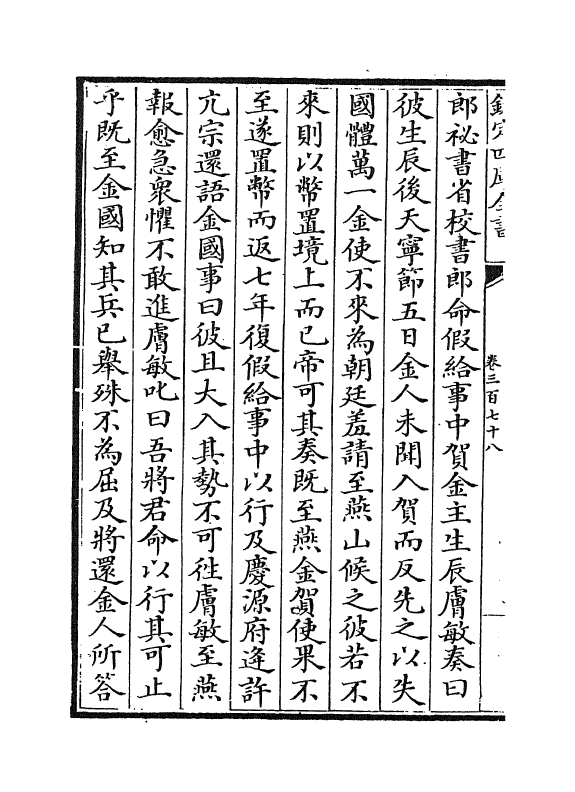 欽定四庫全書
卷三百七十八
郎祕書省校書郎命假給事中賀金主生辰膚敏奏曰
彼生辰後天寧節五日金人未聞入賀而反先之以失
國體萬一金使不來為朝廷羞請至燕山候之彼若不
來則以幣置境上而已帝可其奏既至燕金賀使果不
至遂置幣而返七年復假給事中以行及慶源府逢許
亢宗還語金國事曰彼且大入其勢不可徃膚敏至燕
報愈急衆懼不敢進膚敏叱曰吾將君命以行其可止
乎既至金國知其兵已舉殊不為屈及將還金人所答